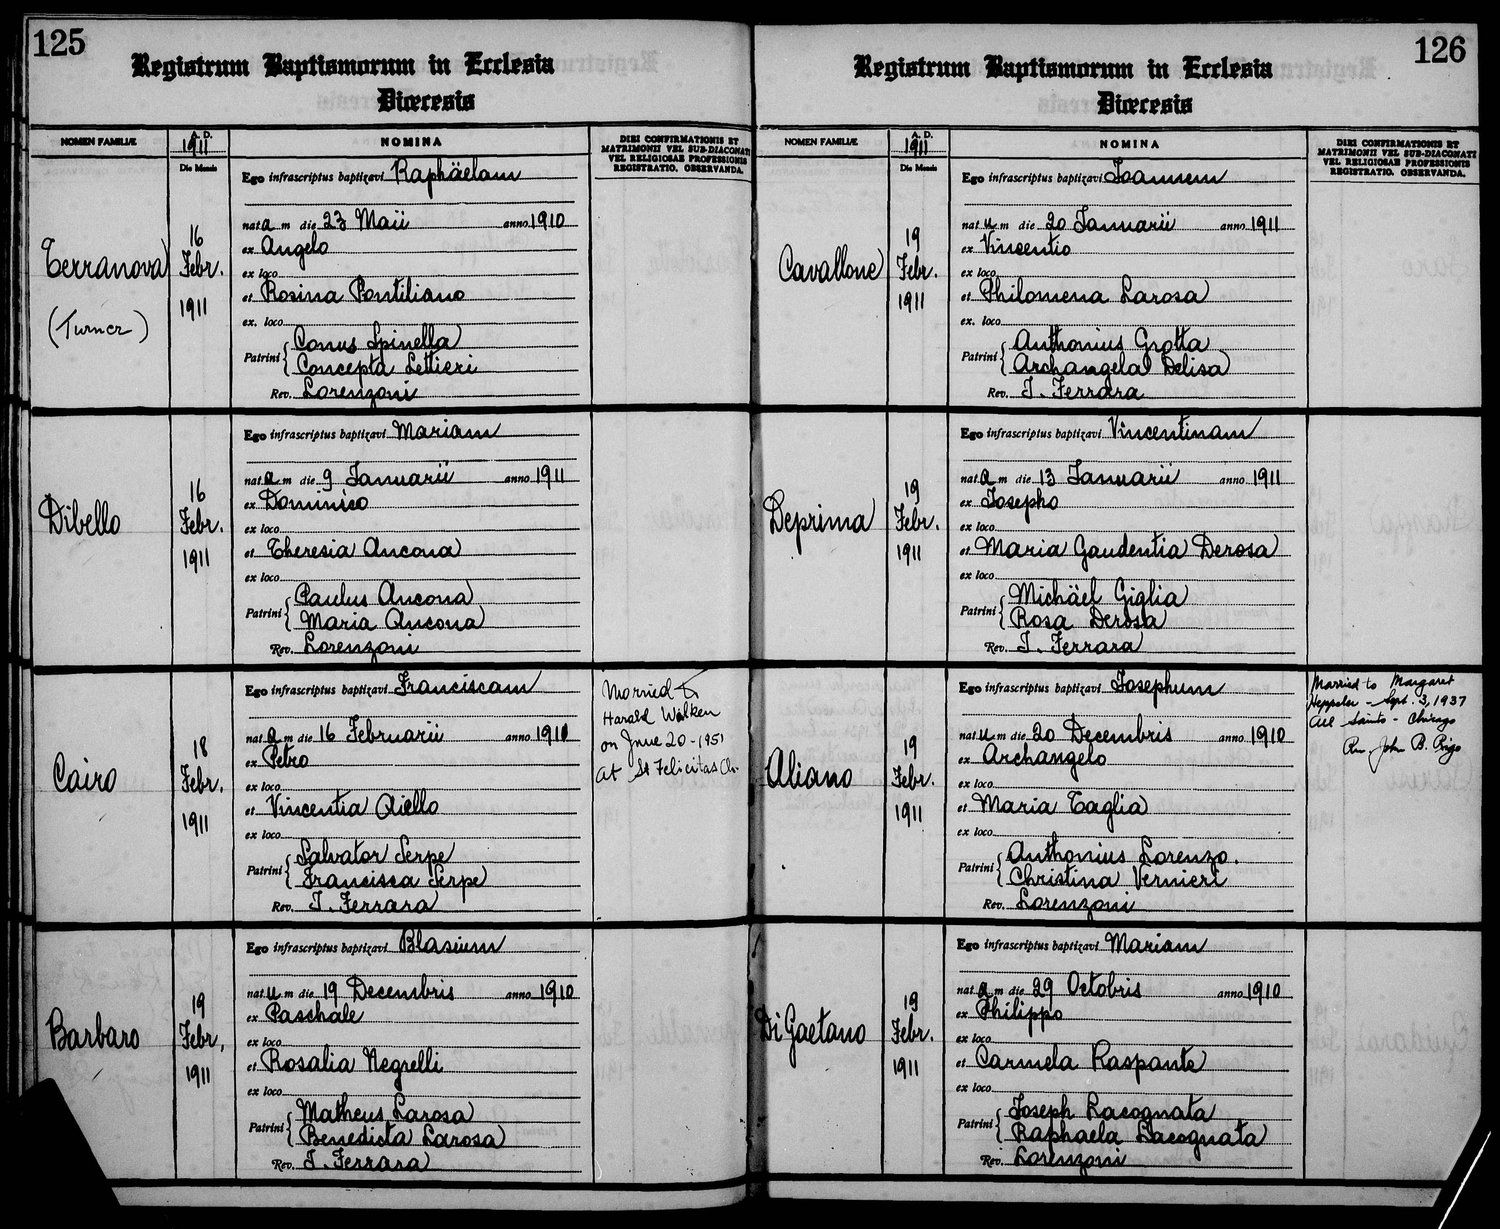 125
Registrum Baptismorum in Ecclesia
Diœcesis
NOMEN FAMILIÆ
A. D.
1911
Die Mensis
NOMINA
DIEI CONFIRMATIONIS ET
MATRIMONII VEL SUB-DIACONATI
VEL RELIGIOSAE PROFESSIONIS
REGISTRATIO. OBSERVANDA.
Terranova
(Turner)
16
Febr.
1911
Ego infrascriptus baptizavi Raphäelam
nat a m die 23 Maii anno 1910
ex Angelo
ex loco
et Rosina Pontiliano
ex. loco
Patrini { Conus Spinella
Concepta Lettieri
Rev. Lorenzoni
Dibello
16
Febr.
1911
Ego infrascriptus baptizavi Mariam
nat a m die 9 Januarii anno 1911
ex Dominico
ex loco
et Theresia Ancona
ex loco
Patrini { Paulus Ancona
Maria Ancona
Rev. Lorenzoni
Cairo
18
Febr.
1911
Ego infrascriptus baptizavi Franciscam
nat a m die 16 Februarii anno 1910
ex Petro
ex loco
et Vincentia Aiello
ex loco
Patrini { Salvator Serpe
Francisca Serpe
Rev. J. Ferrara
Married to
Harald Walken
on June 20-1951
at St Felicitas Ch.
Barbaro
19
Febr,
1911
Ego infrascriptus baptizavi Blasium
nat u m die 19 Decembris anno 1910
ex Paschale
ex loco
et Rosalia Negrelli
ex loco
Patrini { Matheus Larosa
Benedicta Larosa
Rev. J. Ferrara
126
Registrum Baptismorum in Ecclesia
Diœcesis
NOMEN FAMILIÆ
A. D.
1911
Die Mensis
NOMINA
DIEI CONFIRMATIONIS ET
MATRIMONII VEL SUB-DIACONATI
VEL RELIGIOSAE PROFESSIONIS
REGISTRATIO. OBSERVANDA.
Cavallone
19
Febr.
1911
Ego infrascriptus baptizavi Joannem
nat u m die 20 Januarii anno 1911
ex Vincentio
ex loco
et Philomena Larosa
ex. loco
Patrini { Anthonius Grotta
Archangela Delisa
Rev. J. Ferrara
Deprima
19
Febr.
1911
Ego infrascriptus baptizavi Vincentinam
nat a m die 13 Januarii anno 1911
ex Josepho
ex loco
et Maria Gaudentia Derosa
ex loco
Patrini { Michäel Giglia
Rosa Derosa
Rev. J. Ferrara
Aliano
19
Febr.
1911
Ego infrascriptus baptizavi Josephum
nat u m die 20 Decembris anno 1910
ex Archangelo
ex loco
et Maria Taglia
ex loco
Patrini { Anthonius Lorenzo.
Christina Vernieri
Rev. Lorenzoni
Married to Margaret
Heppeler - Sept. 3, 1937
All Saints - Chicago
Rev. John B. Rigo
Di Gaetano
19
Febr.
1911
Ego infrascriptus baptizavi Mariam
nat a m die 29 Octobris anno 1910
ex Philippo
ex loco
et Carmela Raspante
ex loco
Patrini { Joseph Racognata
Raphaela Lacognata
Rev. Lorenzoni